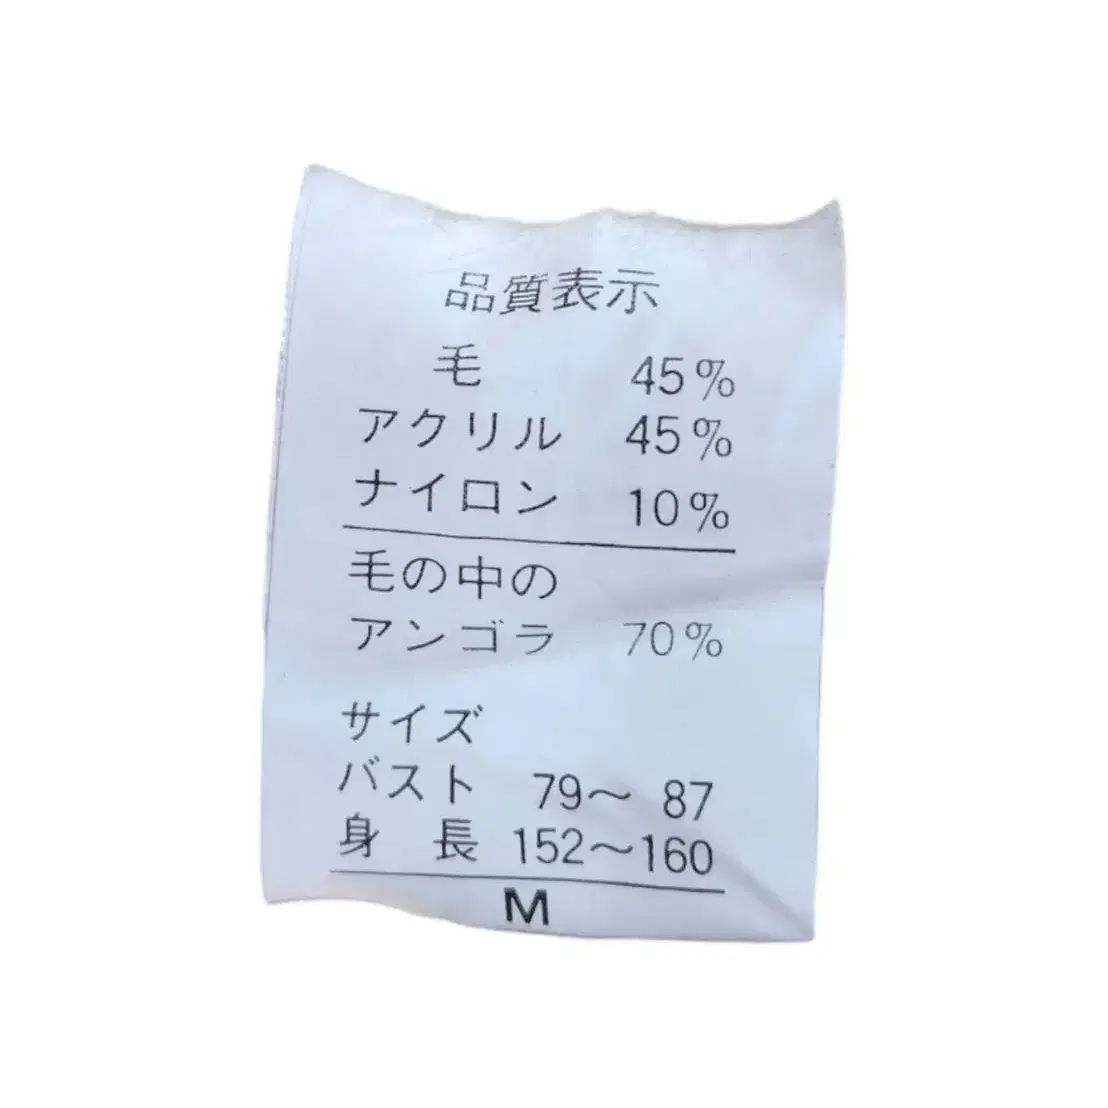 品質表示
毛 45%
アクリル 45%
ナイロン 10%
毛の中の
アンゴラ 70%
サイズ
バスト 79〜 87
身 長 152〜160
M